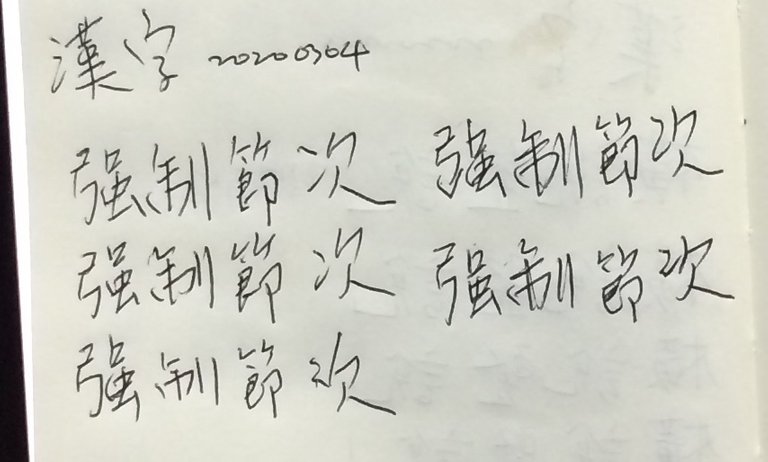 漢字 20200304
强制節次 强制節次
强制節次 强制節次
强制節次